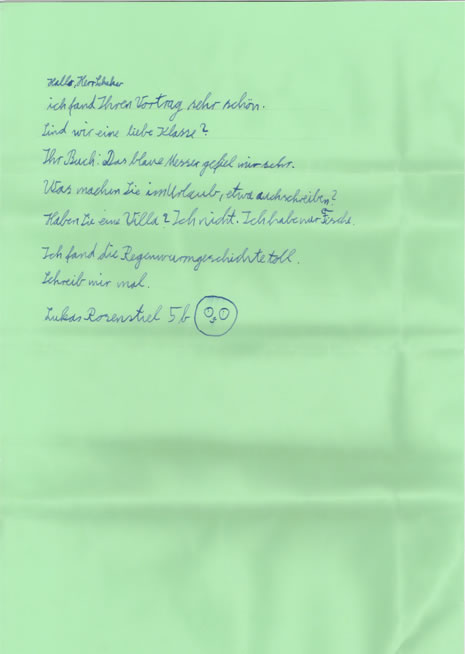 Hallo, Herr
ich fand Ihren Vortrag sehr schön.
Sind wir eine liebe Klasse?
Ihr Buch: Das blaue Messer gefiel mir sehr.
Was machen Sie im Urlaub, etwa auch schreiben?
Haben Sie eine Villa? Ich nicht. Ich habe nur Fische.
Ich fand die Regenwurmgeschichte toll.
Schreib mir mal.
Lukas Rosenstiel 5b